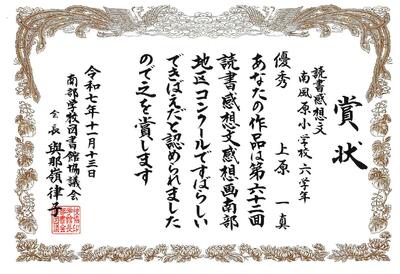 賞状
読書感想文
南風原小学校 六学年
優秀 上原 一真
あなたの作品は第六十二回
読書感想文感想画南部
地区コンクールですばらしい
できばえだと認められました
ので之を賞します
令和七年十一月十三日
南部学校図書館協議会
会長 與那嶺律子